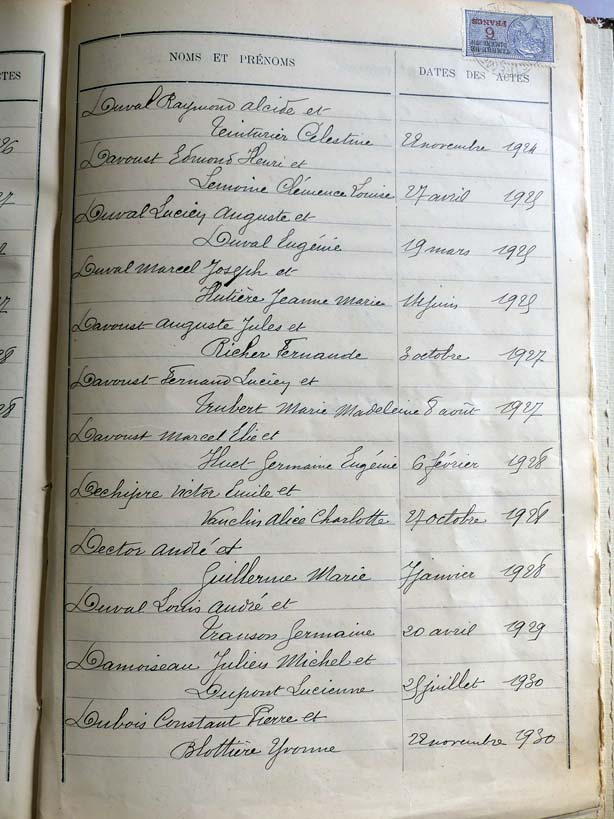 TES
NOMS ET PRÉNOMS
DATES DES ACTES
6
FRANCS
Duval Raymond Alcide et
Teinturier Célestine 22 novembre 1924
Davoust Edmond Henri et
Lemoine Clémence Louise 27 avril 1925
Duval Lucien Auguste et
Duval Eugénie 19 mars 1925
Duval Marcel Joseph et
Hutière Jeanne Marie juin 1925
Davoust Auguste Jules et
Richer Fernande 3 octobre 1927
Davoust Fernand Lucien et
Trubert Marie Madeleine 8 août 1927
Davoust Marcel Elie et
Huet Germaine Eugénie 6 février 1928
Dechipre Victor Emile et
Vanclin Alice Charlotte 27 octobre 1928
Dector André et
Guillerme Marie 7 janvier 1928
Duval Louis André et
Transon Germaine 20 avril 1929
Damoiseau Julien Michel et
Dupont Lucienne 25 juillet 1930
Dubois Constant Pierre et
Blottière Yvonne 22 novembre 1930